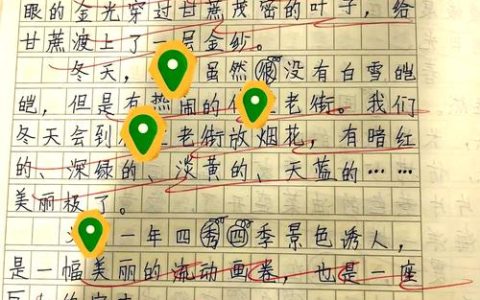 眼的金光穿过甘蔗茂密的叶子，给
甘蔗渡上了一层金纱。
冬天，虽然很没有白雪皑
皑，但是有热闹的老街。我们
冬天会到老街放烟花，有暗红
的、深绿的、淡黄的、天蓝的……
美丽极了。
一年四秀四季景色诱人，
是一幅美丽的流动画卷，也是一座